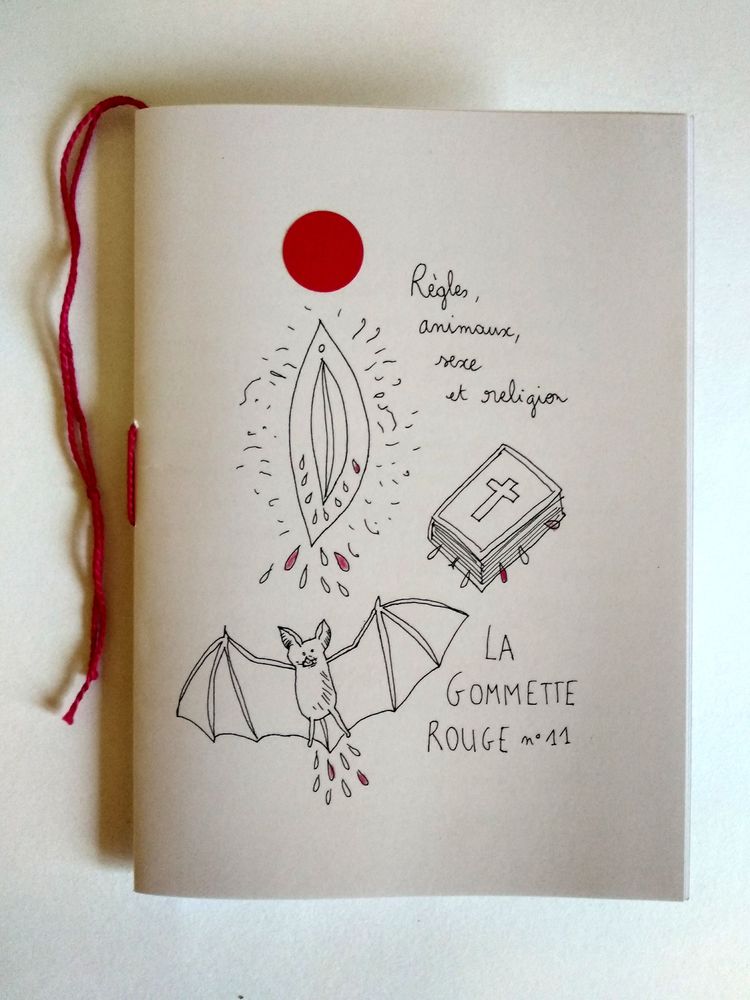 Règles,
animaux,
sexe
et religion
LA
GOMMETTE
ROUGE n° 11